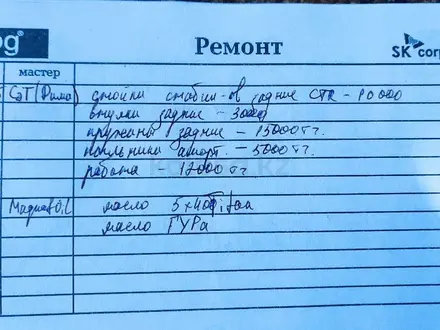 og®
Ремонт
SK corp
мастер
GT (Дима) стойки стабил-ов задние CTR - 10000
втулки задние - 3000
пружины задние - 15000 тг.
пыльники аморт. - 5000 тг.
работа - 12000 тг
масло 5х40
масло ГУРа